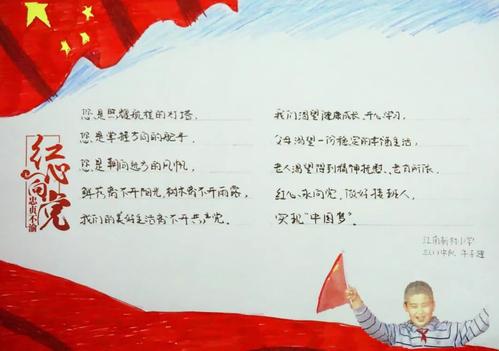 红心向党
忠贞不渝
您是照耀航程的灯塔,
您是掌握方向的舵手,
您是朝向远方的风帆,
鲜花离不开阳光,树木离不开雨露,
我们的美好生活离不开共产党。
我们渴望健康成长、开心学习,
父母渴望一份稳定的幸福生活,
老人渴望得到精神抚慰、老有所依,
红心永向党,做好接班人,
实现"中国梦"。